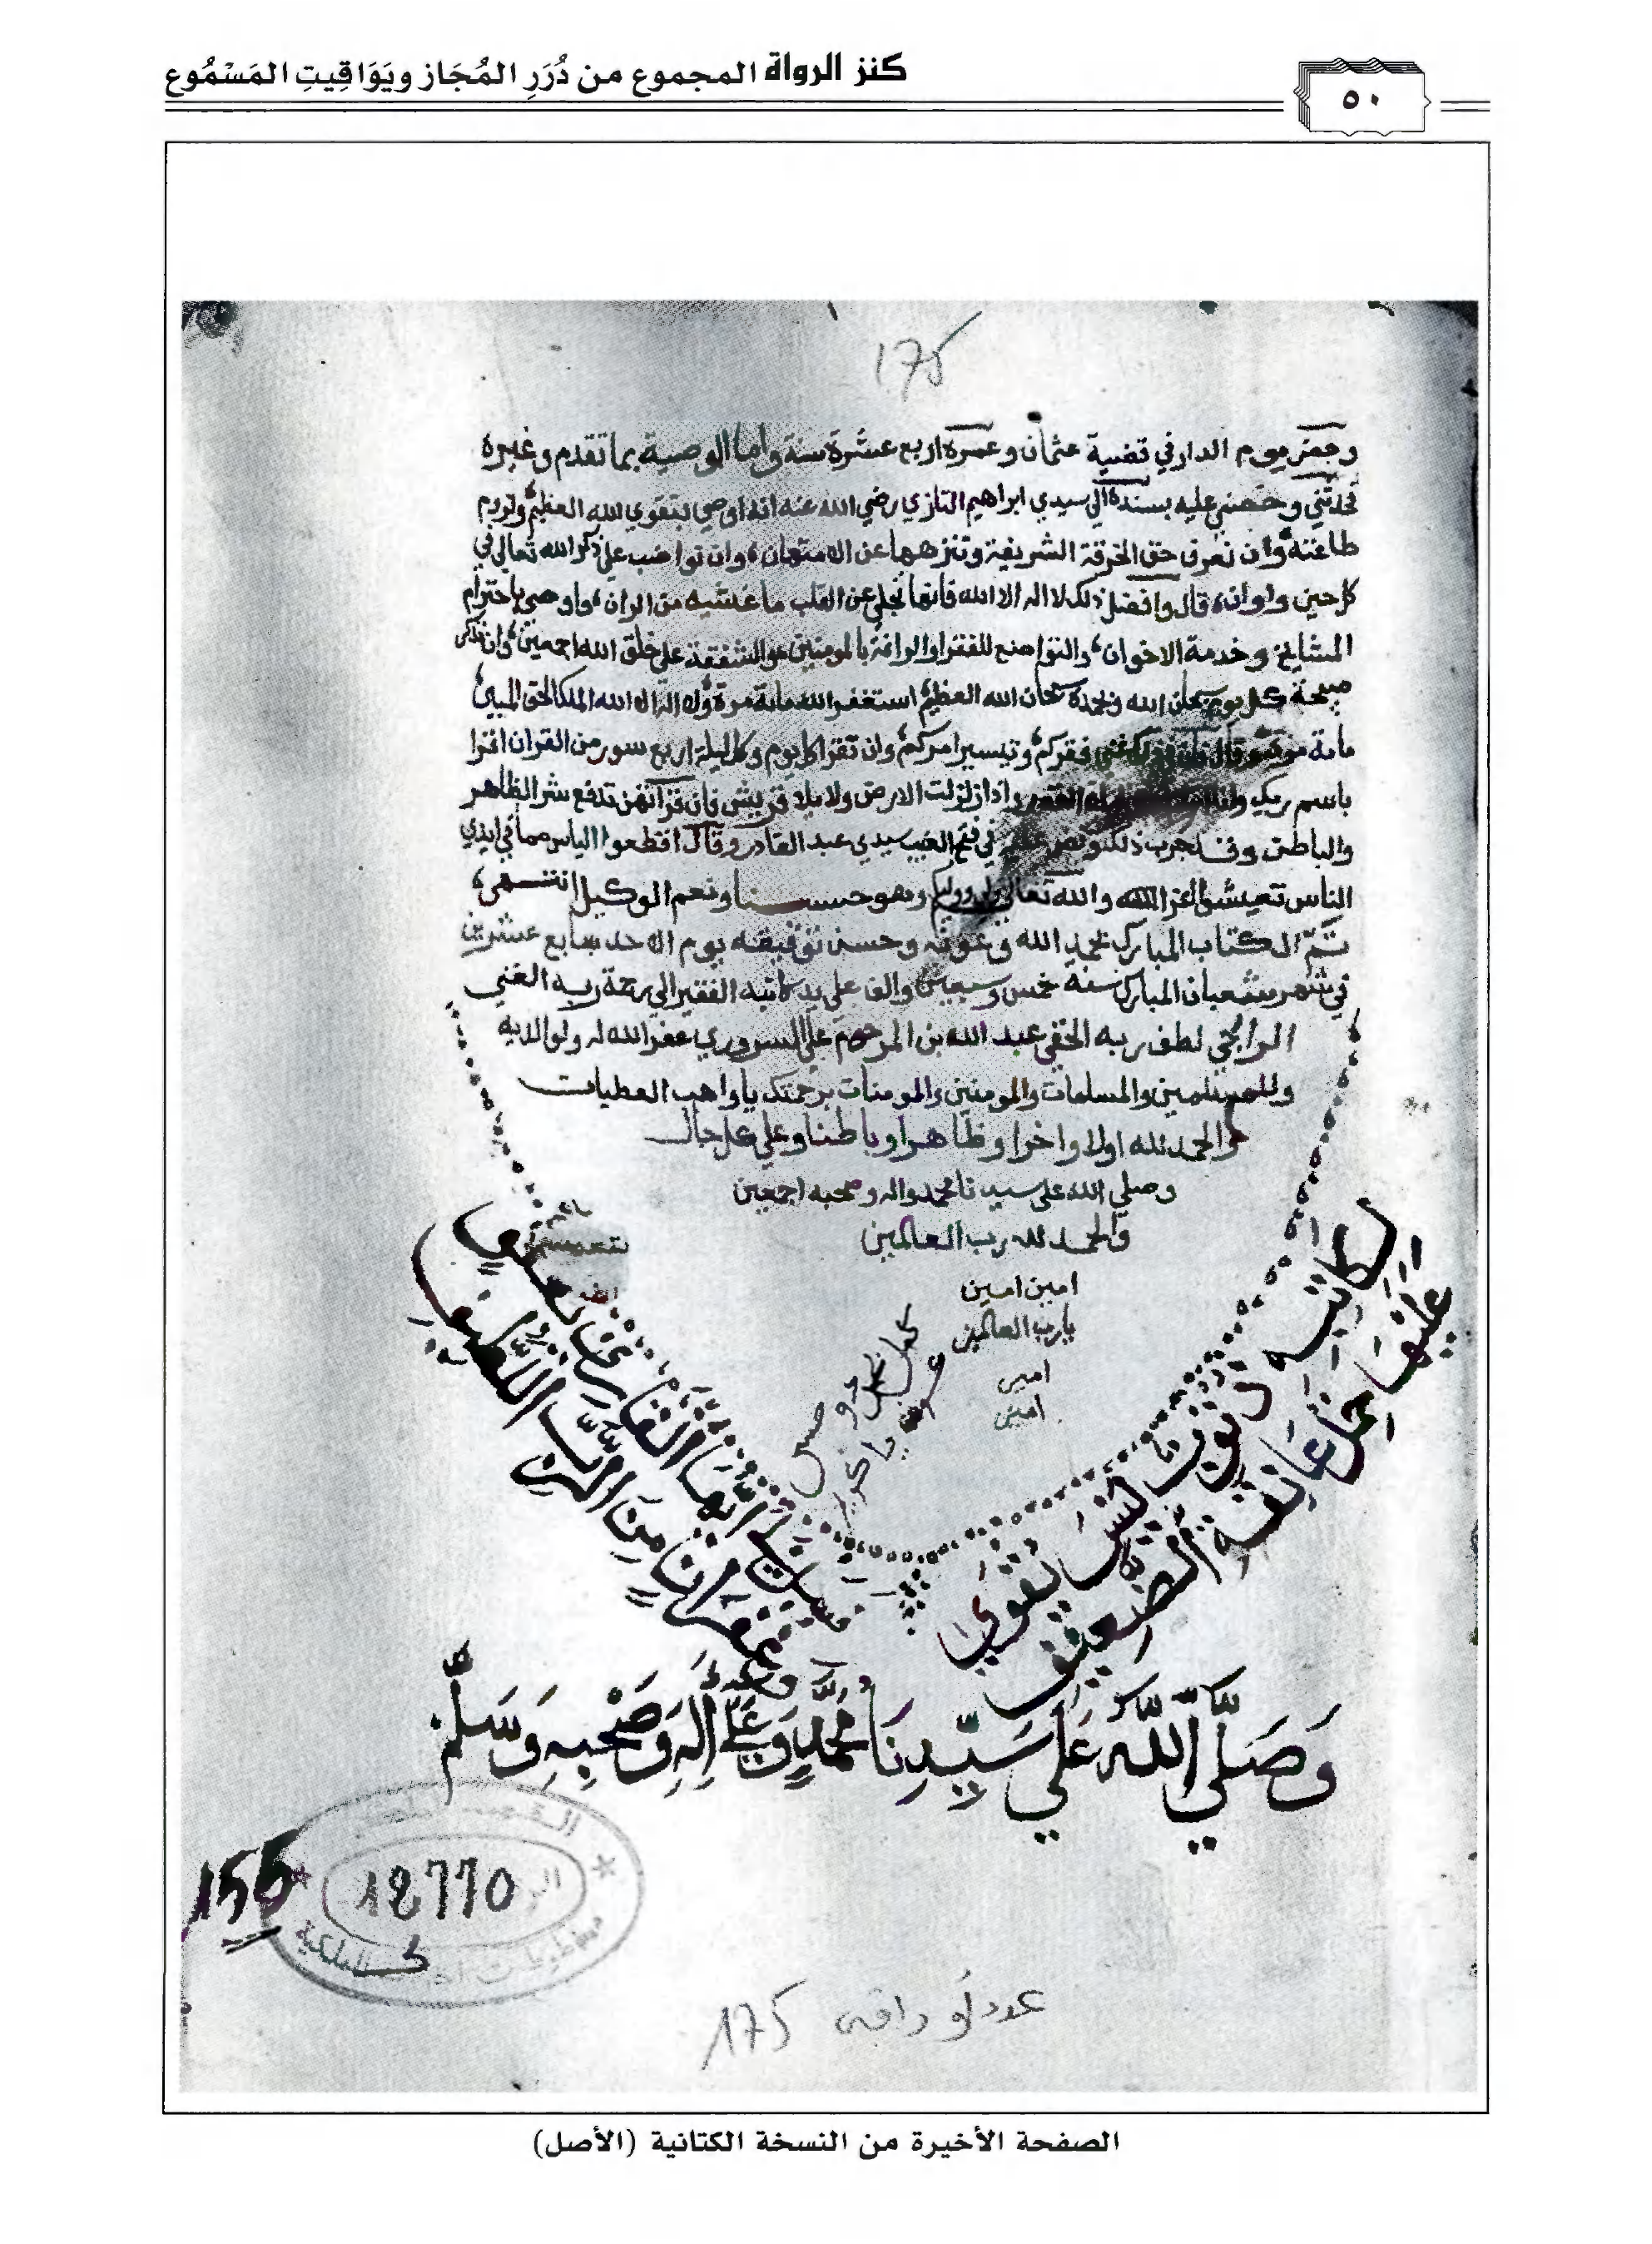 كنز الرواة المجموع من دُرَرِ المُجَاز ويَوَاقِيتِ المَسْمُوع
٥٠
175
وحضر يوم الدار في قضية عثمان وعمره اربع عشرة سنة واما الوصية بما تقدم وغيره
فحدثني وحضني عليه بسنده الي سيدي ابراهيم التازي رضي الله عنه انه اوصي بتقوي الله العظيم ولزوم
طاعته وان نعرف حق الخرقة الشريفة وتنزهها عن الامتهان وان نواضب علي ذكر الله تعالي في
كل حين واوان قال وافضل ذلك لا اله الا الله فانها تجلي عن القلب ما غشيه من الران واوصي باحترام
المشايخ وخدمة الاخوان والتواضع للفقرا والرافة بالمومنين والشفقة علي خلق الله اجمعين وان نذكر
صبحة كل يوم سبحان الله وبحمده سبحان الله العظيم استغفر الله ماية مرة ولا اله الا الله الملك الحق المبين
ماية مرة فقركم وتيسير امركم وان تقرا كل يوم وكل ليلة اربع سور من القران اقرا
باسم ربك واذا زلزلت الارض ولايلاف قريش فان قراتهن تدفع شر الظاهر
والباطن وقد جرب ذلك في فتح الغيب سيدي عبد القادر وقال اقطعوا الياس مما في ايدي
الناس تعيشوا والله تعالي وهو حسبنا ونعم الوكيل انتهي
تم الكتاب المبارك بحمد الله وعونه وحسن توفيقه يوم الاحد سابع عشرين
في شهر شعبان المبارك سنة خمس وسبعين والف علي يد كاتبه الفقير الي رحمة ربه الغني
الراجي لطف ربه الخفي عبد الله بن المرحوم علي السروري غفر الله له ولوالديه
وللمسلمين والمسلمات والمومنين والمومنات برحمتك يا واهب العطيات
والحمد لله اولا واخرا وظاهرا وباطنا وعلي كل حال
وصلي الله علي سيدنا محمد واله وصحبه اجمعين
والحمد لله رب العالمين
امين امين
يارب العالمين
امين
امين
لكاتبه ذنوب ليس تقوي
علي حمل عاتقه الضعيف
يا ايها القاري
غفرانا من الرب اللطيف
وَصَلَّي اللَّه عَلَي سَيِّدِنَا مُحَمَّدٍ وَعَلَي الِهِ وَصَحْبِهِ وَسَلَّم
155
18770
الملكية
175
الصفحة الأخيرة من النسخة الكتانية (الأصل)